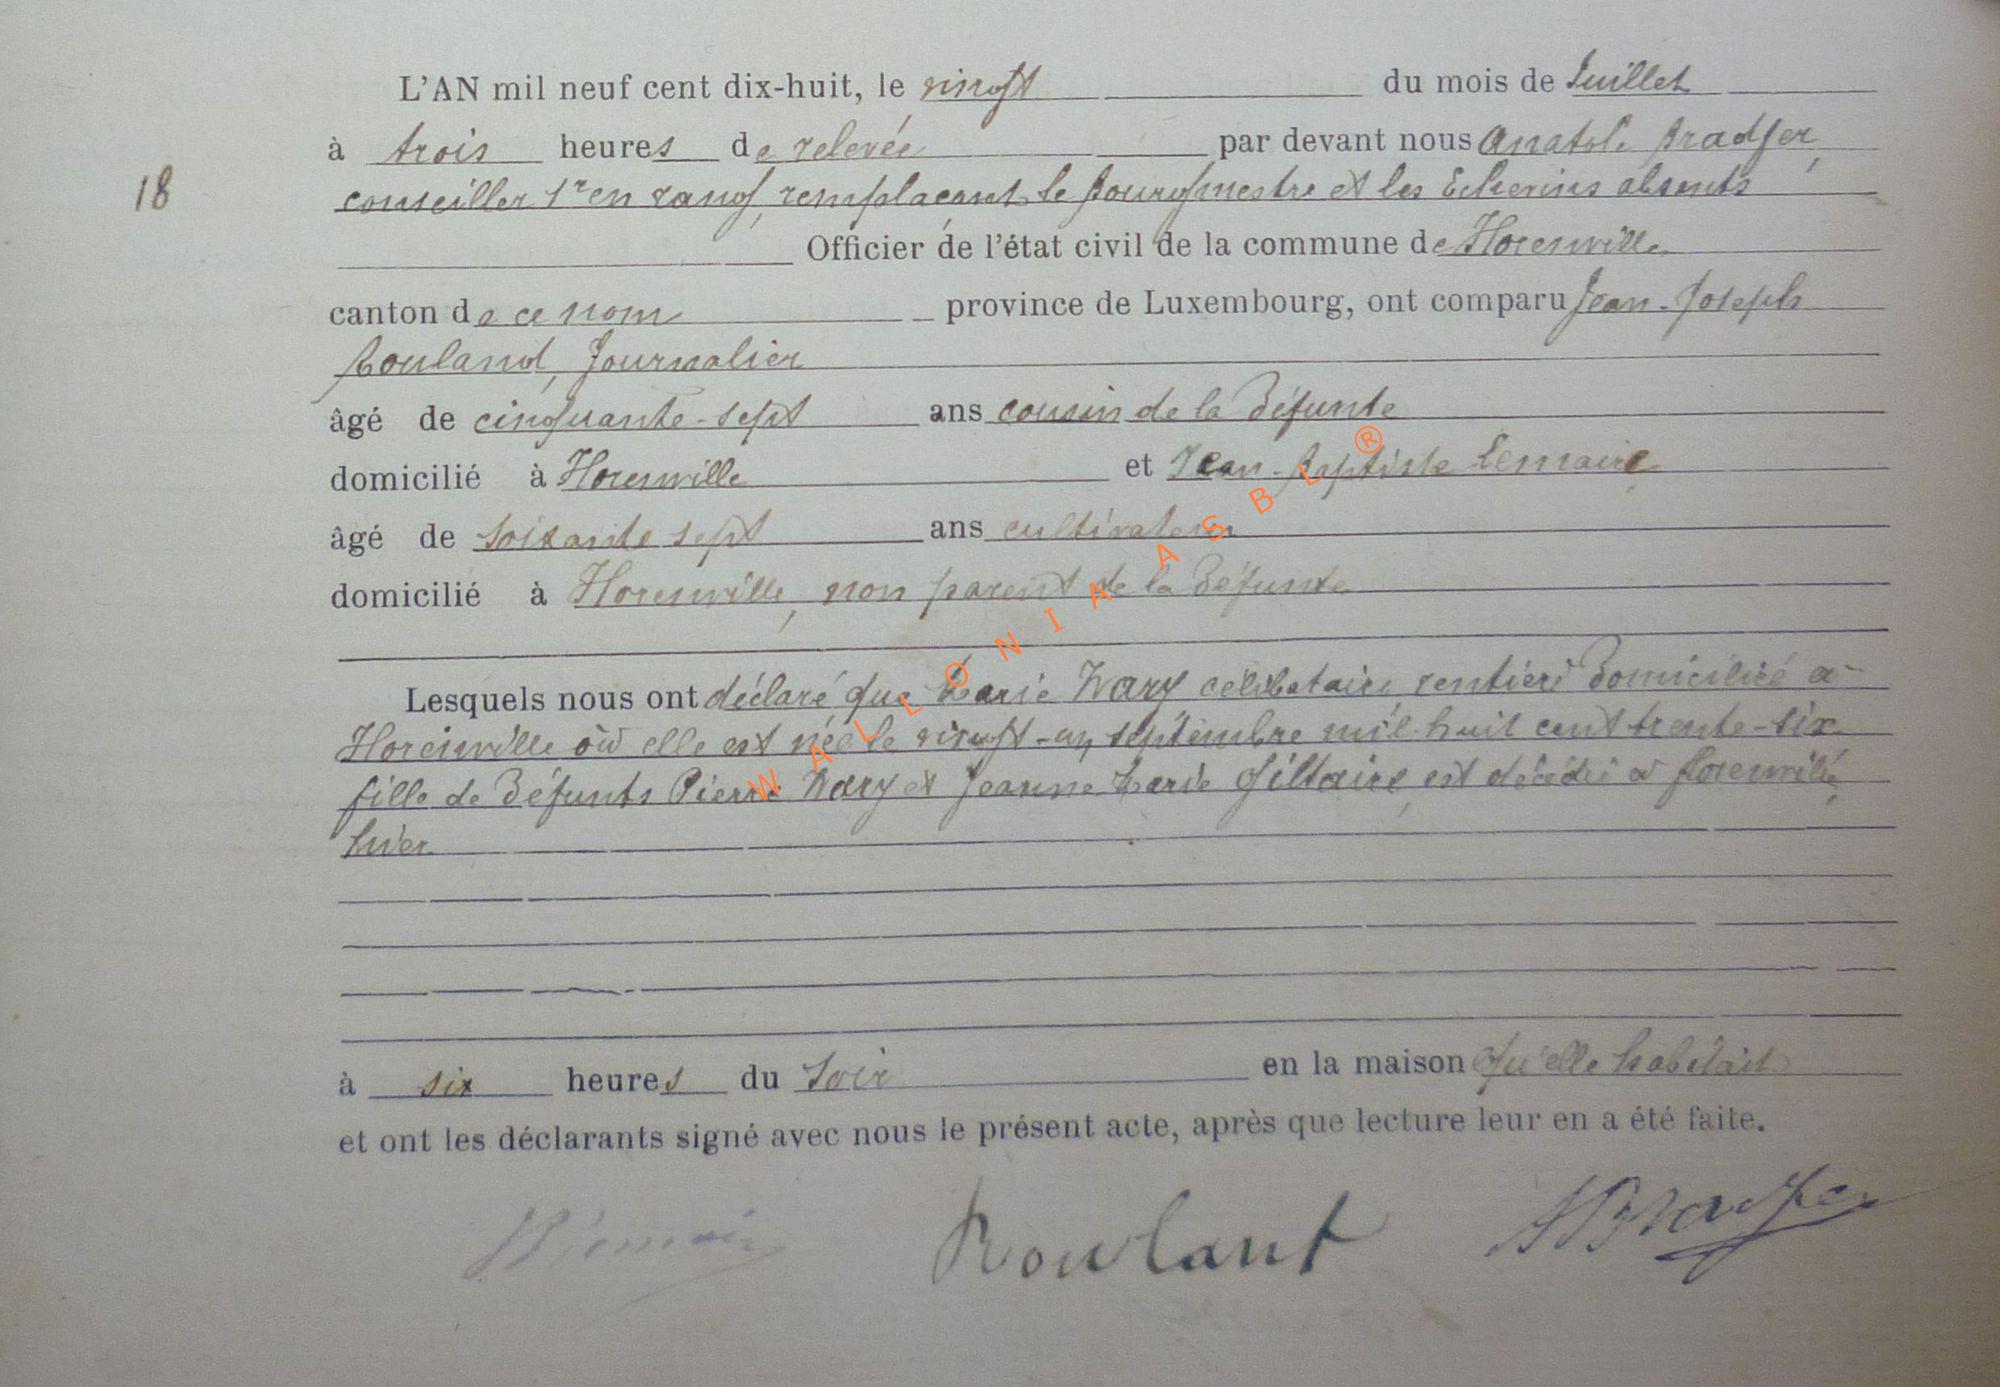 L'AN mil neuf cent dix-huit, le vingt du mois de Juillet
à trois heures de relevée par devant nous Anatole Bradfer,
18
conseiller 1er en rang, remplaçant le Bourgmestre et les Echevins absents
Officier de l'état civil de la commune de Florenville
canton de ce nom province de Luxembourg, ont comparu Jean-Joseph
Rouland, Journalier
âgé de cinquante-sept ans cousin de la Défunte
domicilié à Florenville et Jean-Baptiste Lemaire
âgé de soixante sept ans cultivateur
domicilié à Florenville, non parent de la Défunte
Lesquels nous ont déclaré que Marie Wary célibataire, rentière Domiciliée à
Florenville où elle est née le vingt-un septembre mil huit cent trente-six
fille de Défunts Pierre Wary et Jeanne Marie Giltaire, est décédée à Florenville,
hier
à six heures du soir en la maison qu'elle habitait
et ont les déclarants signé avec nous le présent acte, après que lecture leur en a été faite.
Roulant ABradfer
WALLONIA ASBL ®